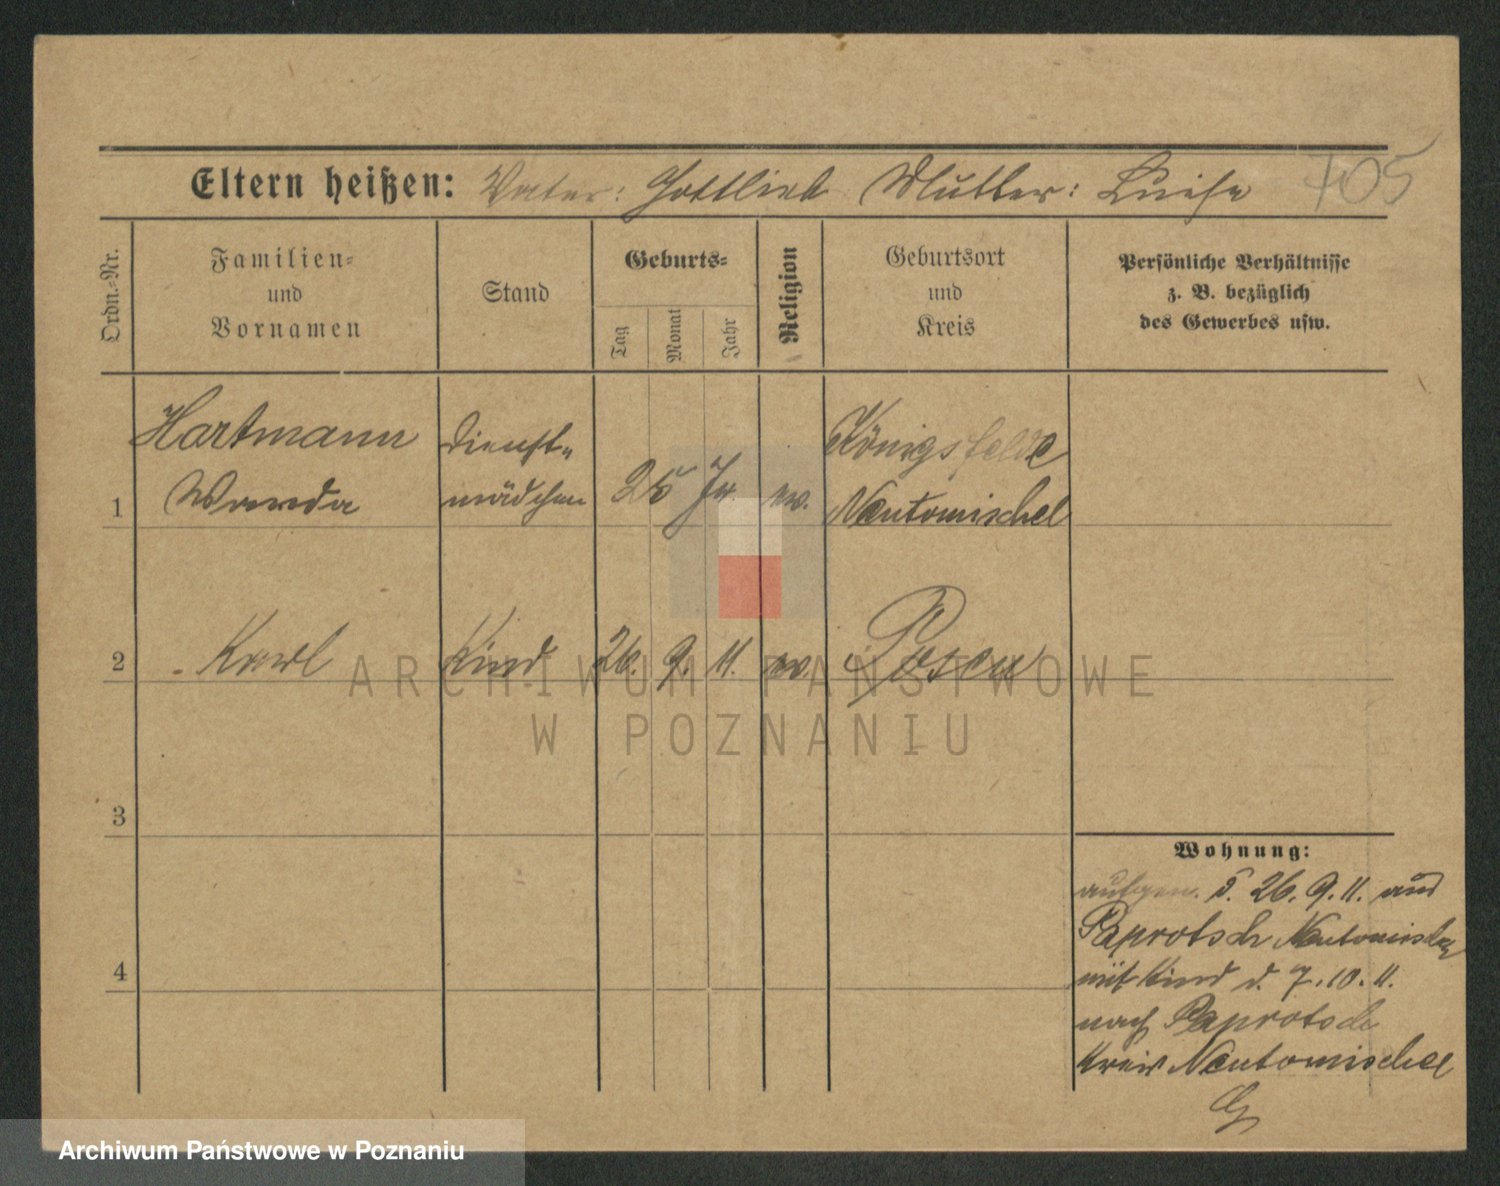 705
Eltern heißen: Vater: Gottlieb Mutter: Luise
Ordn.-Nr.
Familien-
und
Vornamen
Stand
Geburts-
Tag
Monat
Jahr
Religion
Geburtsort
und
Kreis
Persönliche Verhältnisse
z. B. bezüglich
des Gewerbes usw.
1
Hartmann
Wanda
Dienst-
mädchen
25 Jr.
ev.
Königsfelde
Neutomischel
2
- Karl
Kind
26. 9. 11.
ev.
Posen
3
4
Wohnung:
aufgen. d. 26. 9. 11. aus
Paprotsch Neutomischel
mit Kind d. 7. 10. 11.
nach Paprotsch
Kreis Neutomischel
ARCHIWUM PAŃSTWOWE
W POZNANIU
Archiwum Państwowe w Poznaniu